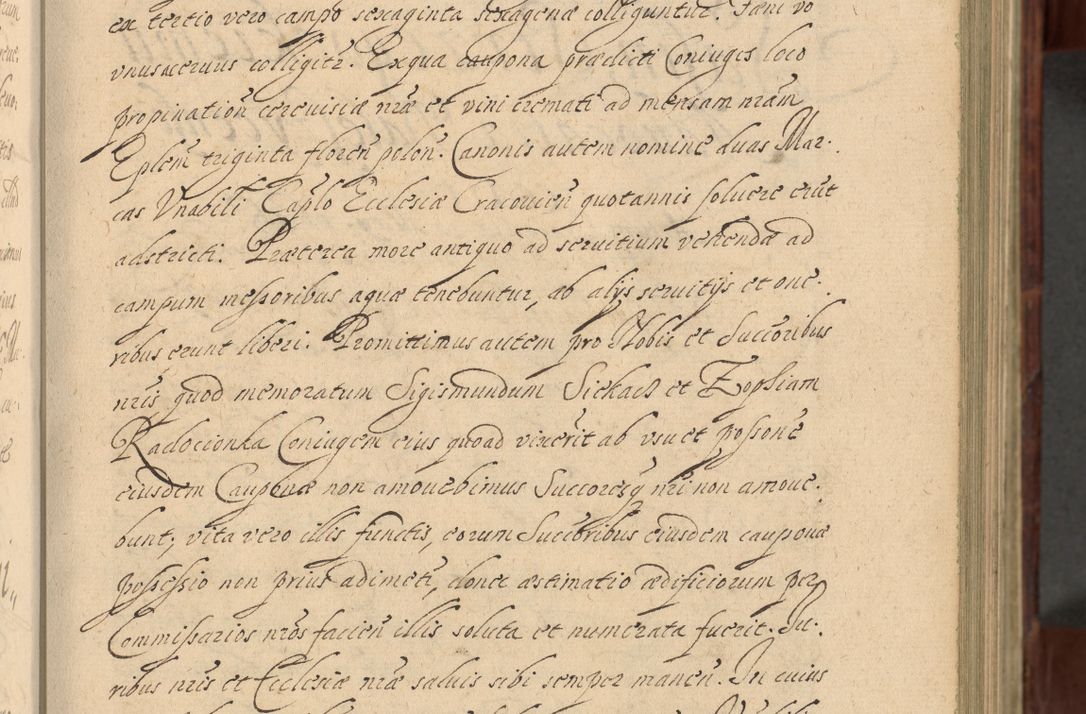 ex tertio vero campo sexaginta sexagenæ colliguntur. Fæni vo
vnus aceruus colligitr. Ex qua caupona prædicti Coniuges loco
propinationẽ cereuisiæ nræ et vini cremati ad mensam nram
Eplem triginta floreñ polon. Canonis autem nomine duas Mar-
cas Vnabili Caplo Ecclesiæ Cracouieñ quotannis soluere erũt
adstricti. Præterea more antiquo ad seruitium vehendæ ad
campum messoribus aquæ tenebuntur, ab alijs seruitijs et one-
ribus erunt liberi. Promittimus autem pro Nobis et Succoribus
nris quod memoratum Sigismundum Siekacz et Zophiam
Radocionka Coniugem eius quoad vixerit ab vsu et possone
eiusdem Cauponæ non amouebimus Succoresq nri non amoue-
bunt, vita vero illis functis, eorum Succribribus eiusdem cauponæ
possessio non prius adimetr, donec æstimatio ædificiorum per
Commissarios nros facieñ illis soluta et numerata fuerit. Iu-
ribus nris et Ecclesiæ nræ saluis sibi semper maneñ. In cuius